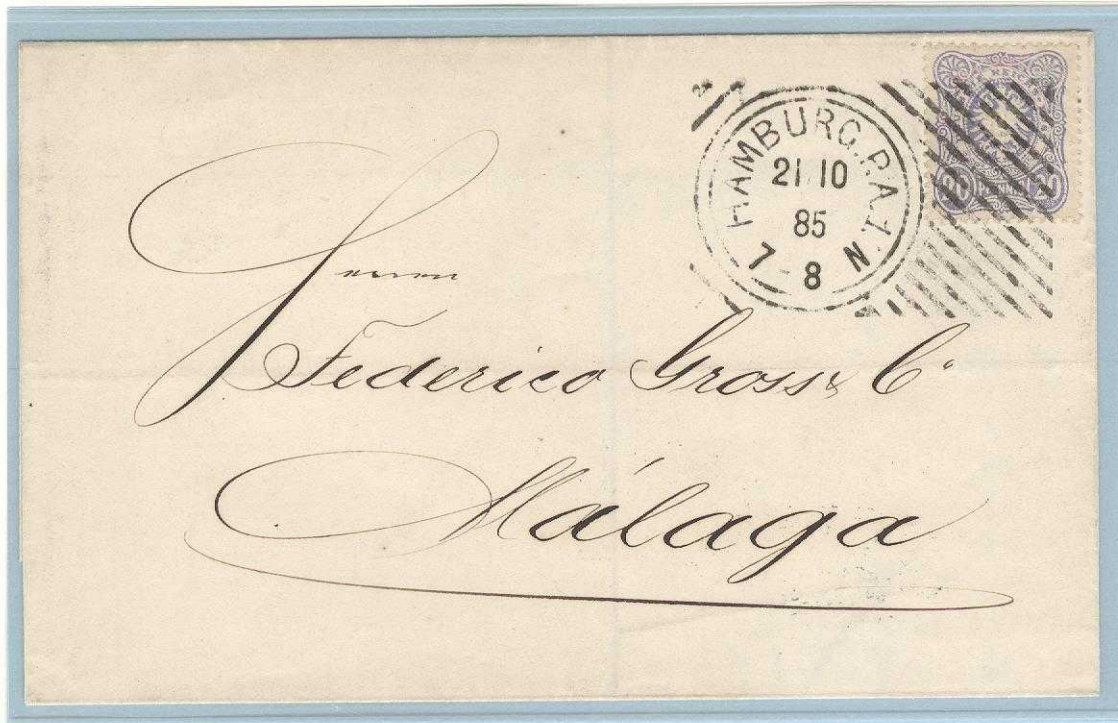 HAMBURG. P.A.1.
21 10
85
7-8 N
20 20
Herren
Federico Gross & Cº
Málaga